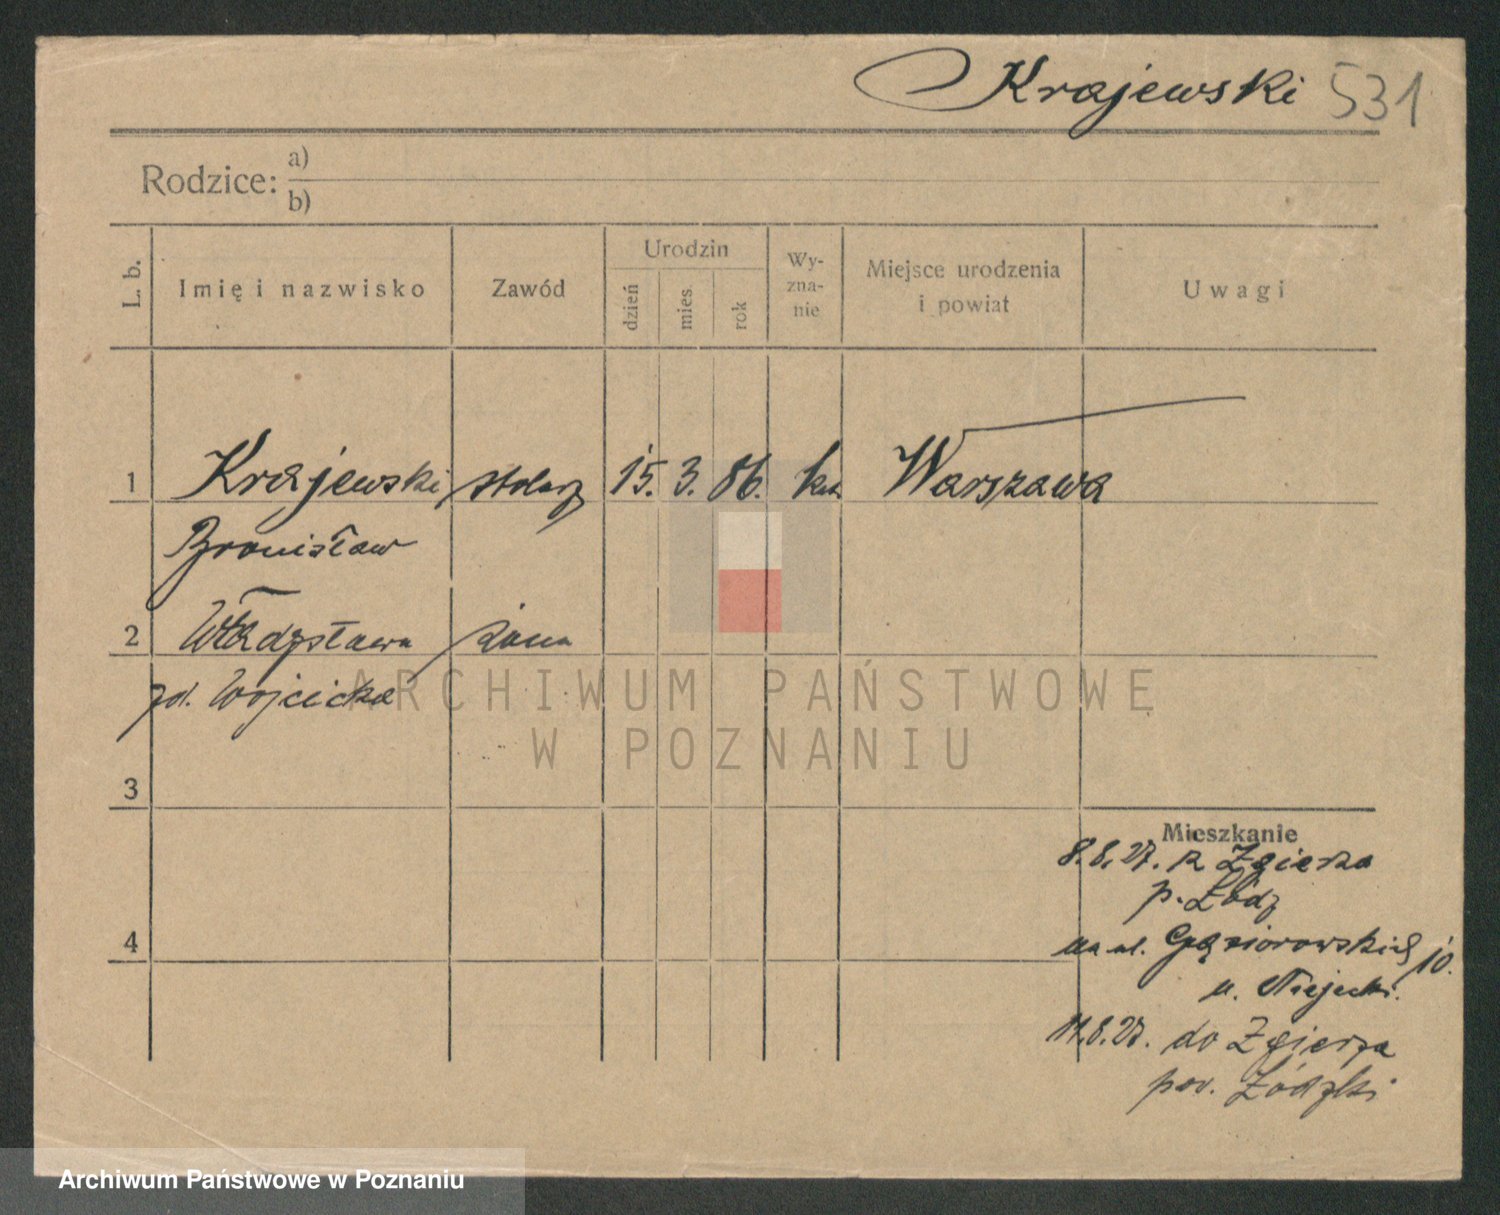 Krajewski 531
Rodzice: a)
b)
L. b. Imię i nazwisko Zawód Urodzin dzień mies. rok Wy-zna-nie Miejsce urodzenia i powiat Uwagi
1 Krajewski stolarz 15. 3. 86. kat. Warszawa
Bronisław
2 Władysława żona
zd. Wojcicka
ARCHIWUM PAŃSTWOWE
W POZNANIU
3
Mieszkanie
8.8.27. z Zgierza
p. Łódź
4
na ul. Gąsiorowskich 10.
u.
8.27. do Zgierza
pow. Łódzki
Archiwum Państwowe w Poznaniu